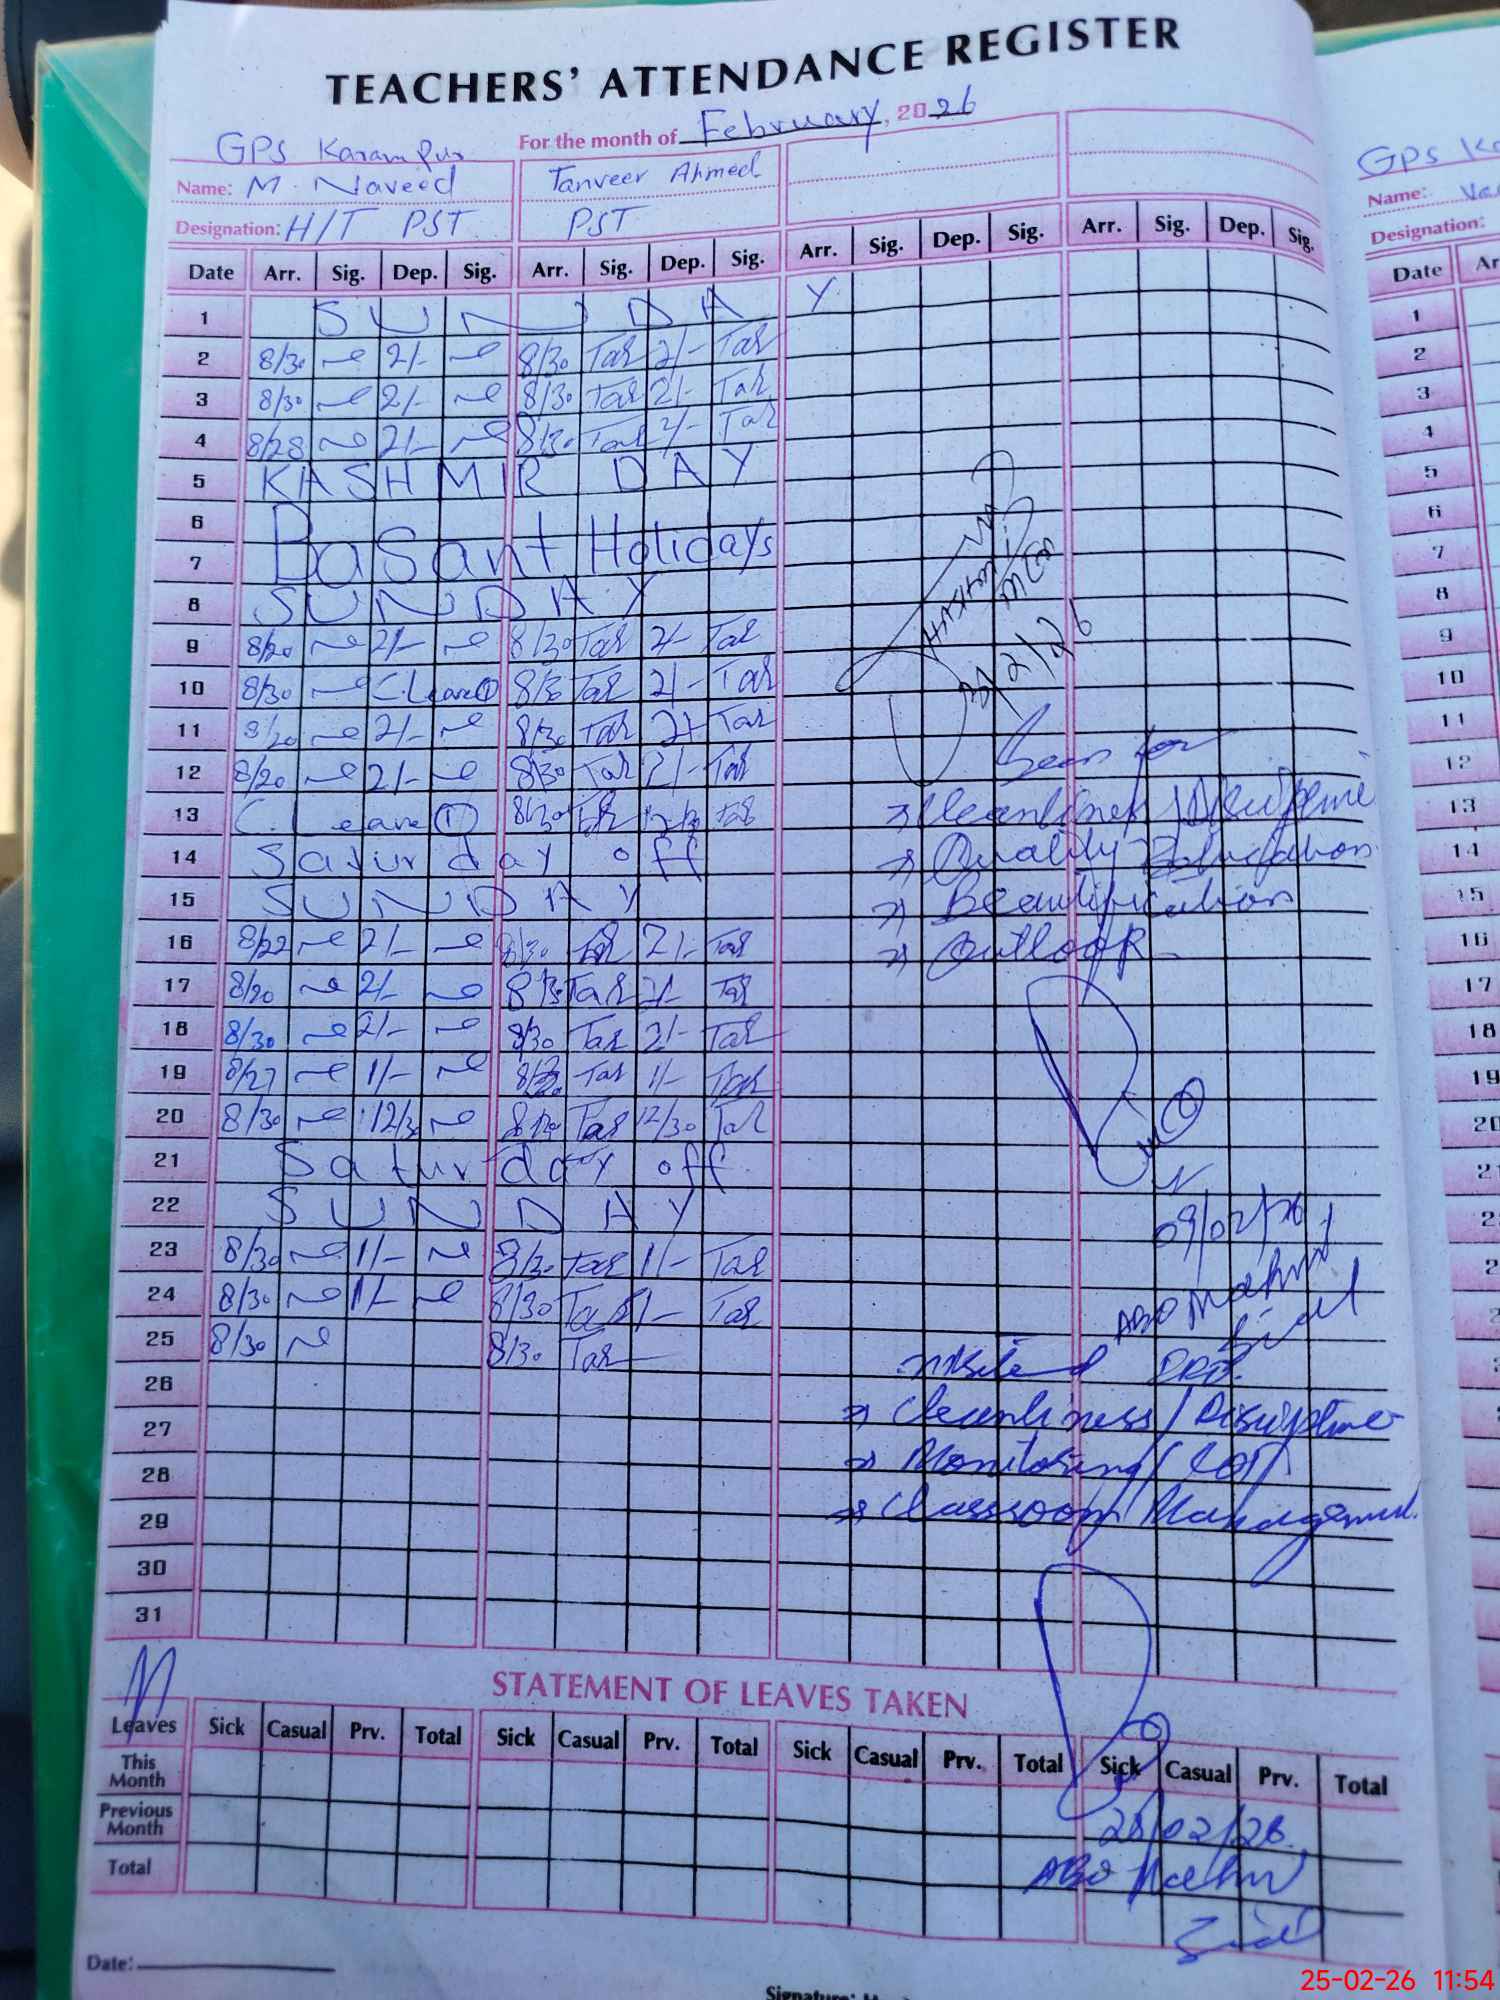 TEACHERS' ATTENDANCE REGISTER
GPS Karampur For the month of February, 2026
Name: M. Naveed Tanveer Ahmed
Designation: H/T PST PST
Date Arr. Sig. Dep. Sig. Arr. Sig. Dep. Sig. Arr. Sig. Dep. Sig. Arr. Sig. Dep. Sig.
1 SUNDAY
2 8/30 2/- 8/30 Tar 2/- Tar
3 8/30 2/- 8/30 Tar 2/- Tar
4 8/28 2/- 8/30 Tar 2/- Tar
5 KASHMIR DAY
6
7 Basant Holidays
8 SUNDAY
9 8/20 2/- 8/30 Tar 2/- Tar
10 8/30 C.Leave 1 8/30 Tar 2/- Tar
11 8/20 2/- 8/30 Tar 2/- Tar
12 8/20 2/- 8/30 Tar 2/- Tar
13 C. Leave 1 8/30 Tar Tar
14 Saturday off
15 SUNDAY
16 8/22 2/- 8/30 Tar 2/- Tar
17 8/20 2/- 8/30 Tar 2/- Tar
18 8/30 2/- 8/30 Tar 2/- Tar
19 8/27 1/- Tar 1/- Tar
20 8/30 12/30 Tar 12/30 Tar
21 Saturday off
22 SUNDAY
23 8/30 1/- 8/30 Tar 1/- Tar
24 8/30 1/- 8/30 Tar 1/- Tar
25 8/30 8/30 Tar
26
27
28
29
30
31
Seen for
Cleanliness / Discipline
Quality Education
Beautification
Outlook
09/02/26
AEO
Sial
Visited
Cleanliness / Discipline
Monitoring / COT
Classroom Management
/02/26
AEO
Sial
STATEMENT OF LEAVES TAKEN
Leaves Sick Casual Prv. Total Sick Casual Prv. Total Sick Casual Prv. Total Sick Casual Prv. Total
This Month
Previous Month
Total
Date:
Signature:
GPS
Name:
Designation:
Date
1
2
3
4
5
6
7
8
9
10
11
12
13
14
15
16
17
18
19
25-02-26 11:54